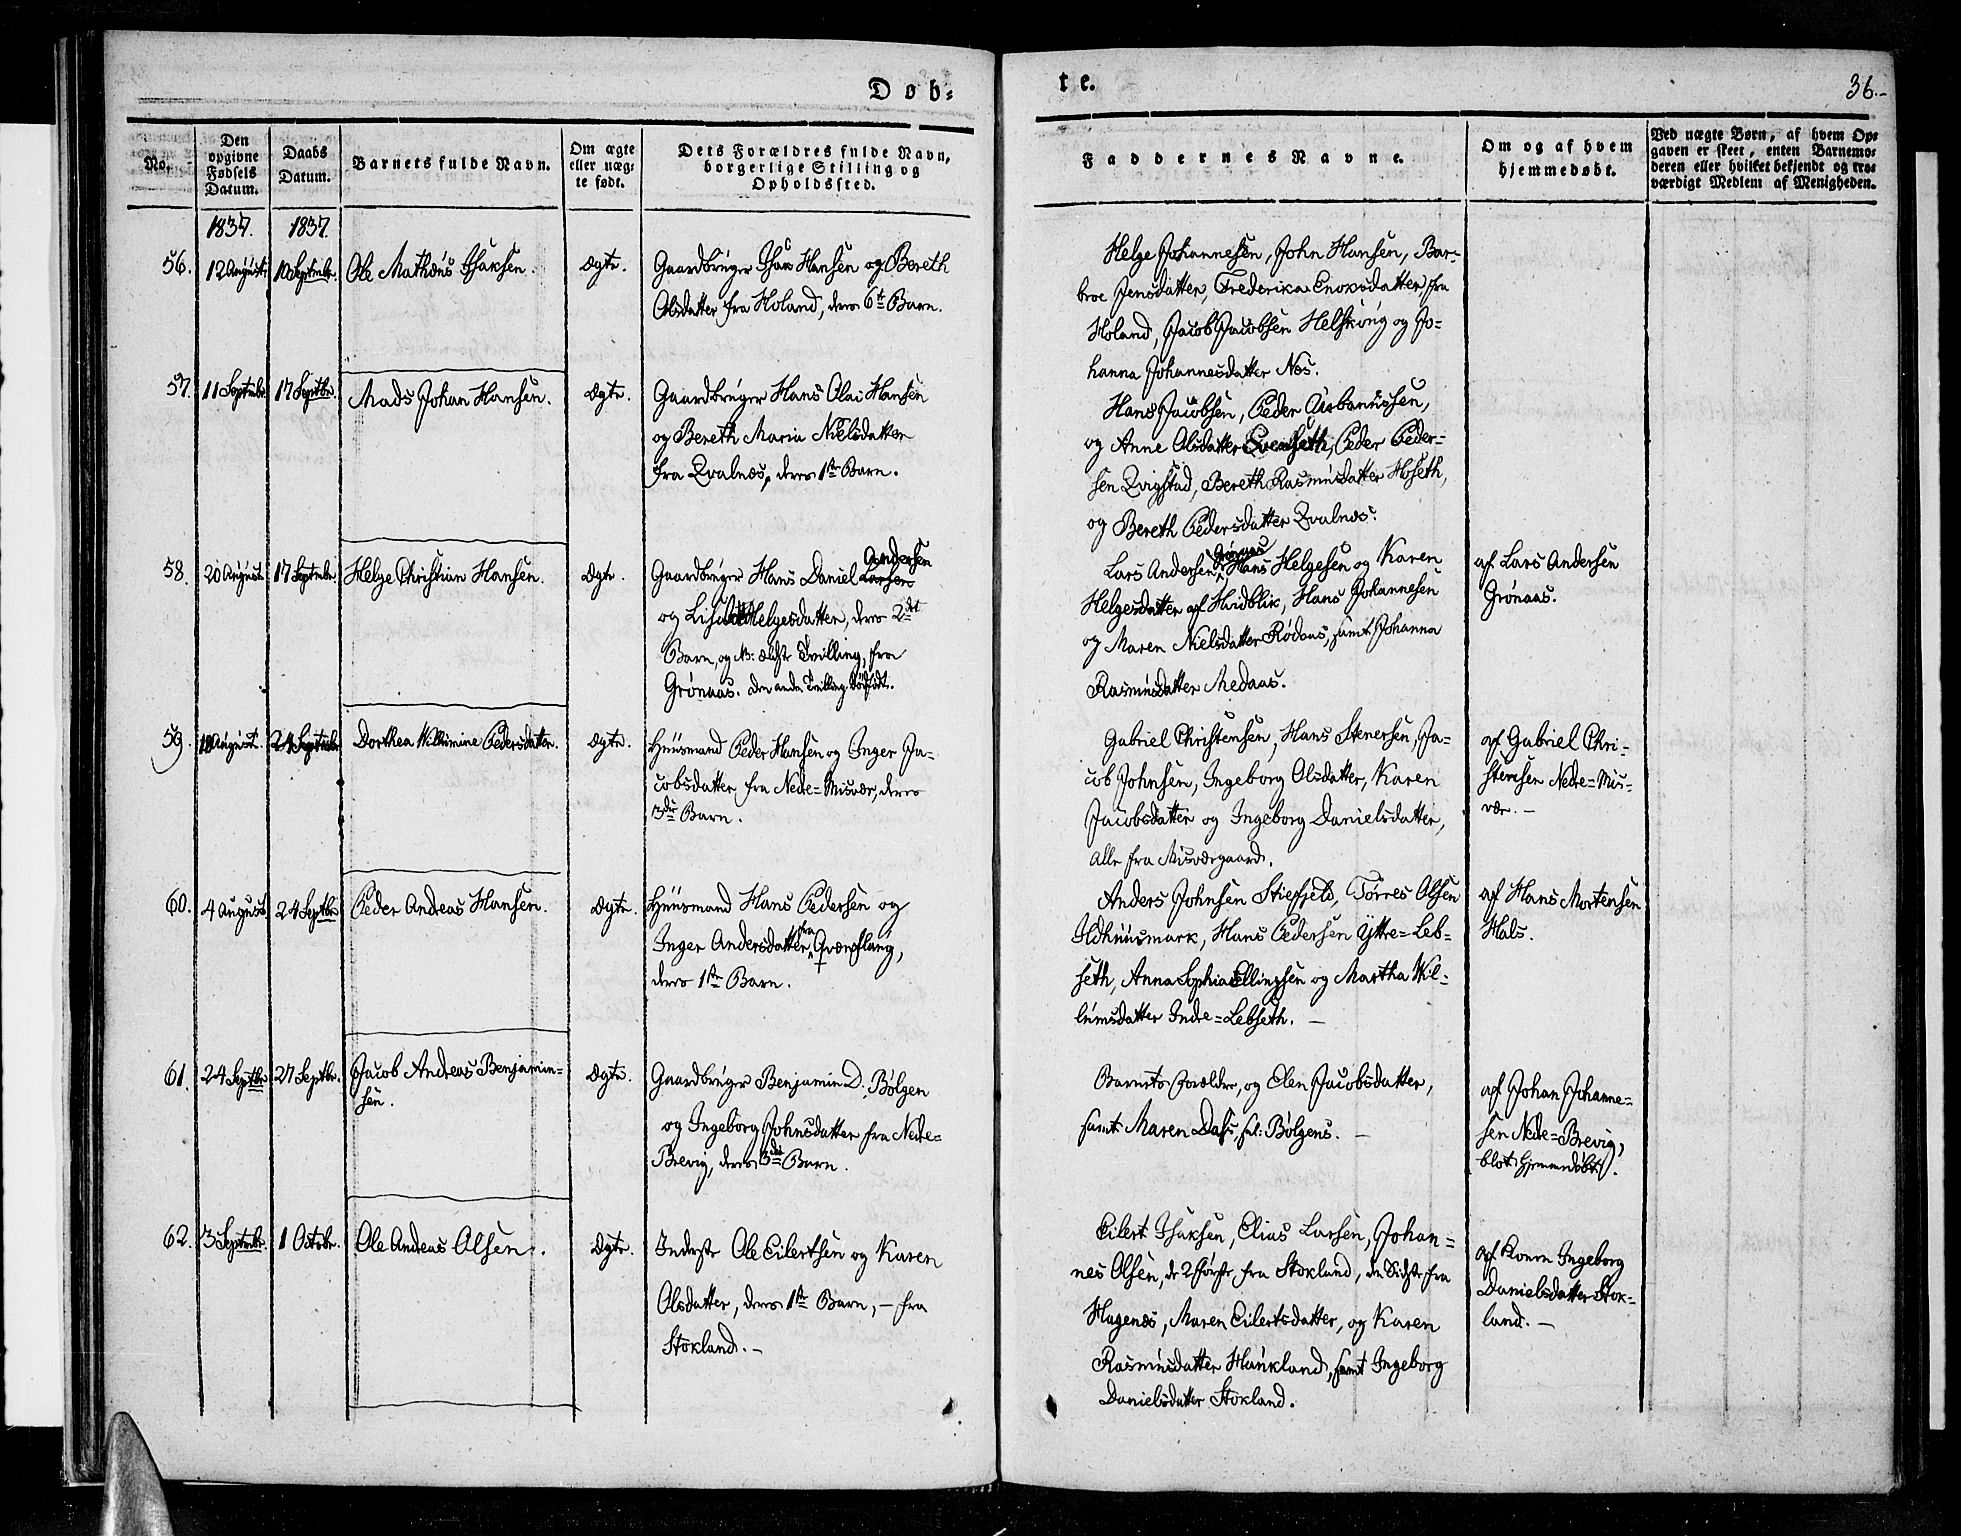 Døb-
te.
36.-
No.
Den opgivne Fødsels Datum.
Daabs Datum.
Barnets fulde Navn.
Om ægte eller uægte født.
Dets Forældres fulde Navn, borgerlige Stilling og Opholdssted.
Faddernes Navne.
Om og af hvem hjemmedøbt.
Ved uægte Børn, af hvem Opgaven er skeet, enten Barnemoderen eller hvilket bekjendt og troværdigt Medlem af Menigheden.
1837. 1837.
56. 12 August. 10 Septembr. Ole Mathæus Isaksen. Ægte.
Gaardbruger Isac Hansen og Bereth
Olsdatter fra Holand, deres 6te Barn.
Helge Johannesen, John Hansen, Bar-
broe Jensdatter, Frederika Enoksdatter fra
Holand, Jacob Jacobsen Helskoug og Jo-
hanna Johannesdatter Næs.
57. 11 Septembr. 17 Septbr. Mads Johan Hansen. Ægte.
Gaardbruger Hans Olai Hansen
og Bereth Maria Nielsdatter
fra Qvalnæs, deres 1ste Barn.
Hans Jacobsen, Peder Urbanussen,
og Anne Olsdatter Evenseth, Peder Peder-
sen Qvigstad, Bereth Rasmusdatter Høseth,
og Bereth Pedersdatter Qvalnæs.
58. 20 August. 17 Septembr. Helge Christian Hansen. Ægte.
Gaardbruger Hans Daniel Larsen Andersen
og Lisabeth Helgesdatter, deres 2det
Barn, og NB: ældste Tvilling, fra
Grønaas. Den anden Tvilling dødfødt.
Lars Andersen Grønaas, Hans Helgesen og Karen
Helgesdatter af Hvidblik, Hans Johannesen
og Maren Nielsdatter Rødaas, samt Johanna
Rasmusdatter Medaas.
af Lars Andersen
Grønaas.
59. 18 August. 24 Septembr. Dorthea Willumine Pedersdatter. Ægte.
Huusmand Peder Hansen og Inger Ja-
cobsdatter fra Nedre=Misvær, deres
3die Barn.
Gabriel Christensen, Hans Stenersen, Ja-
cob Johnsen, Ingeborg Olsdatter, Karen
Jacobsdatter og Ingeborg Danielsdatter,
alle fra Misværgaard.
af Gabriel Chri-
stensen Nedre=Mis-
vær. -
60. 4 August. 24 Septbr. Peder Andreas Hansen. Ægte.
Huusmand Hans Pedersen og
Inger Andersdatter, fra Qvænflaug,
deres 1ste Barn.
Anders Johnsen Stiefjeld, Tørres Olsen
Ildhuusmark, Hans Pedersen Yttre=Leb-
seth, Anna Sophia Ellingsen og Martha Wil-
lumsdatter Indre=Lebseth. -
af Hans Mortensen
Hals.
61. 24 Septbr. 27 Septbr. Jacob Andreas Benjamin-
sen. Ægte.
Gaardbruger Benjamin D: Bølgen
og Ingeborg Johnsdatter fra Nedre=
Brevig, deres 3die Barn.
Barnets Forældre, og Elen Jacobsdatter,
samt Maren Dass, sal: Bølgens. -
af Johan Johanne-
sen Nedre=Brevig,
blot hjemmedøbt.
62. 3 Septembr. 1 Octobr. Ole Andreas Olsen. Ægte.
Inderste Ole Eilertsen og Karen
Olsdatter, deres 1ste Barn, - fra
Stokland. -
Eilert Isaksen, Elias Larsen, Johan-
nes Olsen, de 2 første fra Stokland, den Sidste fra
Hagenæs, Maren Eilertsdatter, og Karen
Rasmusdatter Haukland, samt Ingeborg
Danielsdatter Stokland.
af Konen Ingeborg
Danielsdatter Stok-
land. -